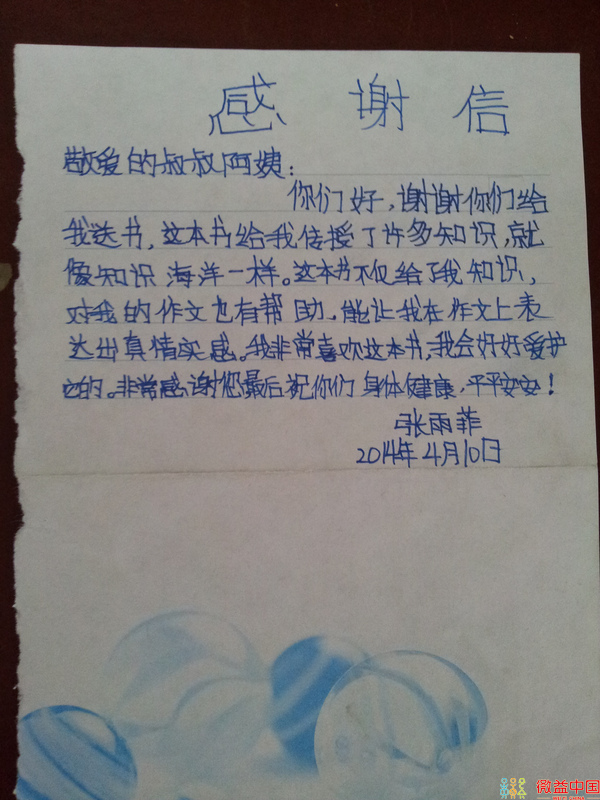 感谢信
敬爱的叔叔阿姨：
你们好，谢谢你们给
我送书，这本书给我传授了许多知识，就
像知识海洋一样。这本书不仅给了我知识，
对我的作文也有帮助，能让我在作文上表
达出真情实感。我非常喜欢这本书，我会好好爱护
它的。非常感谢您最后祝你们身体健康，平平安安！
张雨菲
2014年4月10日
微益中国